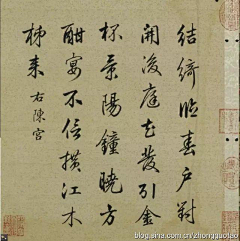 結綺臨春戶對
開後庭花發引金
杯景陽鐘曉方
酣宴不信橫江木
柹来 右陳宮
blog.sina.com.cn/zhongguotao